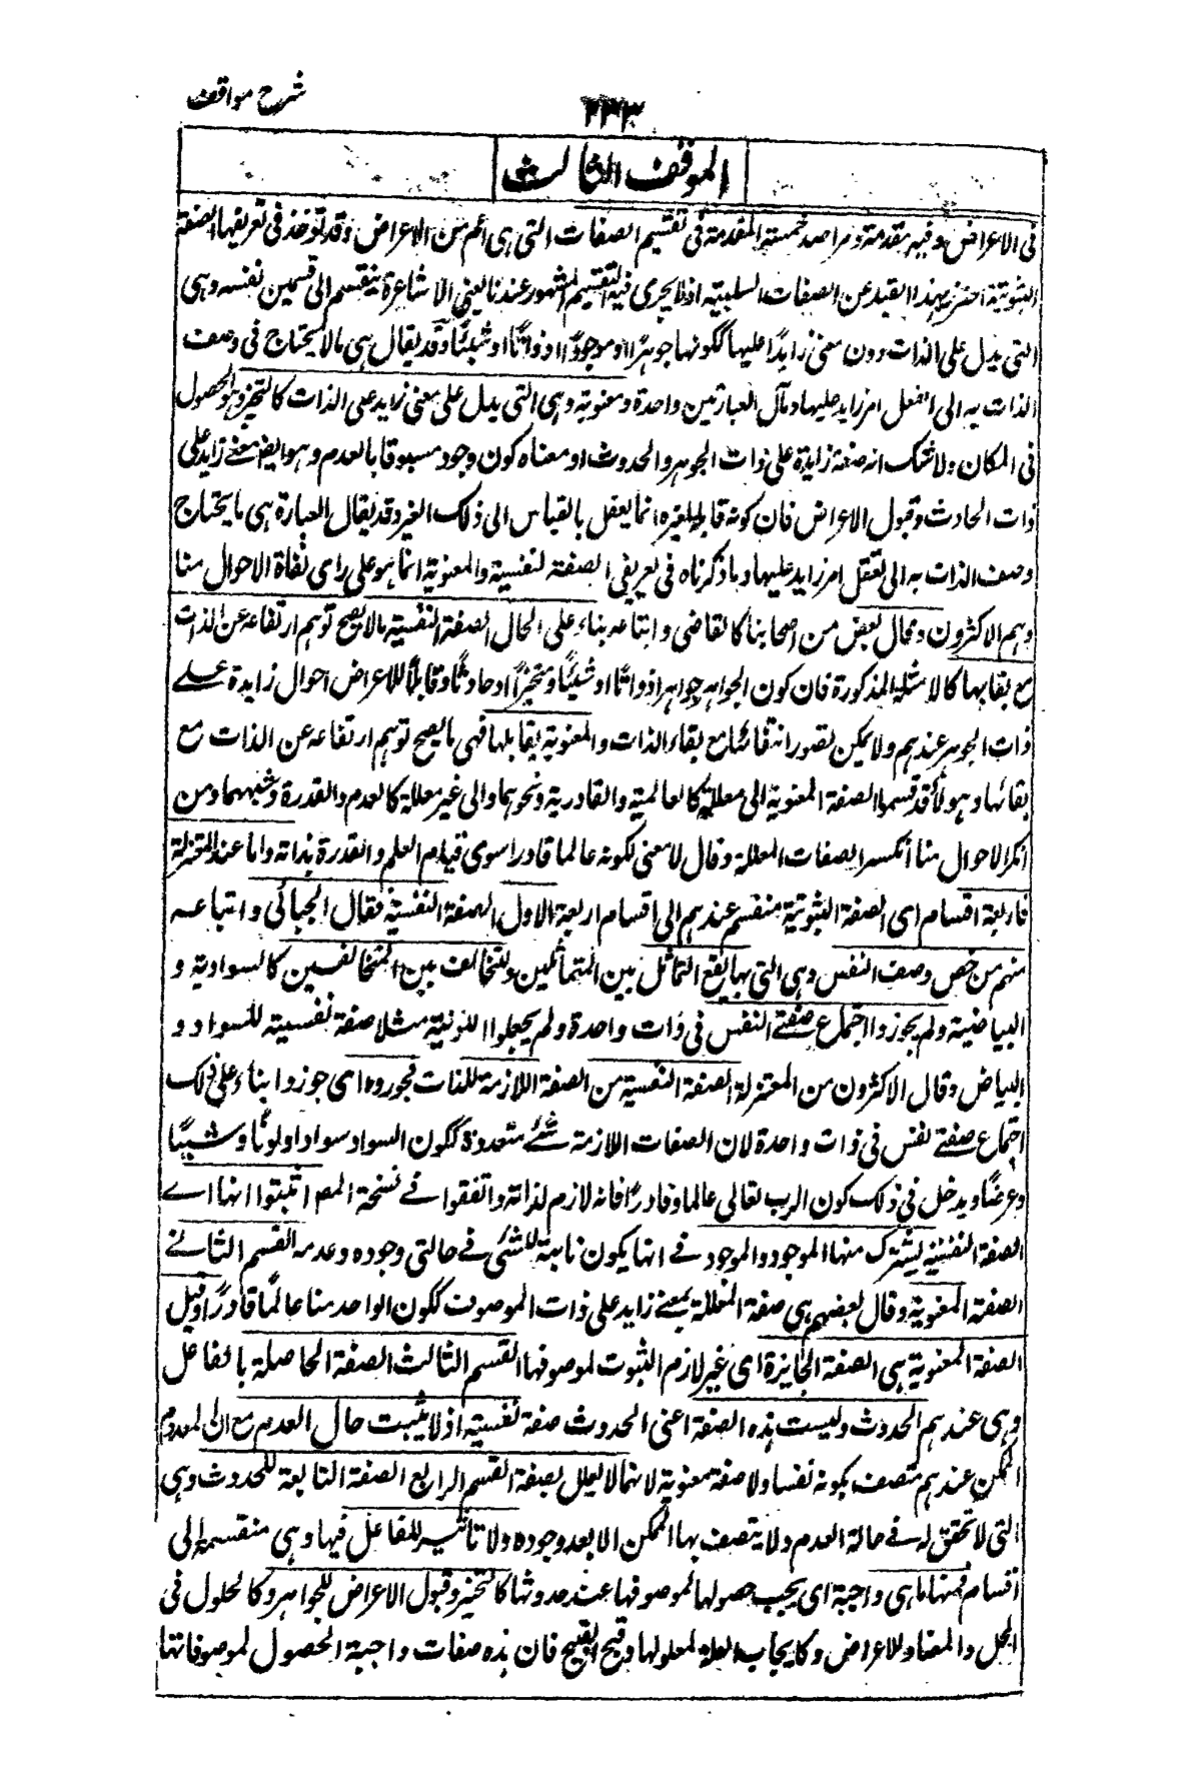 شرح مواقف
٢٣٣
الموقف الثالث
فى الاعراض وفيه مقدمة ومراصد خمسة المقدمة فى تقسيم الصفات التى هى اعم من الاعراض وقد تؤخذ فى تعريفها الصفة
الثبوتية احترز بهذا القيد عن الصفات السلبية اذ لا يجرى فيه التقسيم المشهور عندنا يعنى الاشاعرة ينقسم الى قسمين نفسه وهى
التى يدل على الذات دون معنى زايدا عليها ككونها جوهرا او موجودا او ذواتا او شيئا وقد يقال هى مالا يحتاج فى وصف
الذات به الى تعقل امر زايد عليها ومآل العبارتين واحدة ومعنوية وهى التى يدل على معنى زايد على الذات كالتحيز وهو الحصول
فى المكان ولا شك انه صفة زايدة على ذات الجوهر والحدوث او معناه كون وجود مسبوقا بالعدم وهو ايضا معنے زايد على
ذات الحادث وقبول الاعراض فان كونه قابلا لغيره انما يعقل بالقياس الى ذلك الغير وقد يقال العبارة هى ما يحتاج
وصف الذات به الى تعقل امر زايد عليها وما ذكرناه فى تعريفى الصفة النفسية والمعنوية انما هو على راى نفاة الاحوال منا
وهم الاكثرون وقال بعض من اصحابنا كالقاضى واتباعه بناء على الحال الصفة النفسية مالا يصح توهم ارتفاعه عن الذات
مع بقائها كالامثلة المذكورة فان كون الجواهر جواهر او ذواتا او شيئا ومتحيزا او حادثا وقابلا للاعراض احوال زايدة علے
ذات الجوهر عندهم ولا يمكن تصور انتفائها مع بقاء الذات والمعنوية يقابلها فهى ما يصح توهم ارتفاعه عن الذات مع
بقائها وهولاء قد قسموا الصفة المعنوية الى معللة كالعالمية والقادرية ونحوهما والى غير معللة كالعدم والقدرة وشبههما ومن
انكر الاحوال منا انكسر الصفات المعللة وقال لا معنى لكونه عالما قادرا سوى قيام العلم والقدرة بذاته واما عند المعتزلة
فاربعة اقسام اى الصفة الثبوتية منقسم عندهم الى اقسام اربعة الاول الصفة النفسية فقال الجبائى واتباعه
منهم من خص وصف النفس وهى التى بها يقع التماثل بين المتماثلين والتخالف بين المتخالفين كالسوادية و
البياضية ولم يجوزوا اجتماع صفتے النفس فى ذات واحدة ولم يجعلوا اللونية مثلا صفة نفسية للسواد و
البياض وقال الاكثرون من المعتزلة الصفة النفسية من الصفة اللازمة للذات فجوزوه اى جوزوا بناء على ذلك
اجتماع صفتے نفس فى ذات واحدة لان الصفات اللازمة شئے متعددة ككون السواد سوادا ولونا وشيئا
وعرضا ويدخل فى ذلك كون الرب تعالى عالما وقادرا فانه لازم لذاته واتفقوا فے نسخة المص اثبتوا انها اے
الصفة النفسية يشترك منها الموجود والموجود فے انها يكون ثابتة للشئ فے حالتى وجوده وعدمه القسم الثانے
الصفة المعنوية وقال بعضهم هى صفة المعللة بمعنے زايد على ذات الموصوف ككون الواحد منا عالما قادرا وقيل
الصفة المعنوية هى الصفة الجايزة اى غير لازم الثبوت لموصوفها القسم الثالث الصفة الحاصلة بالفاعل
وهى عندهم الحدوث وليست هذه الصفة اعنى الحدوث صفة نفسية اذ لا يثبت حال العدم مع ان المعدوم
الممكن عندهم متصف بكونه نفسا ولا صفة معنوية لانها لا يعلل بصفة القسم الرابع الصفة التابعة للحدوث وهى
التى لا تحقق له فے حالة العدم ولا يتصف بها الممكن الا بعد وجوده ولا تاثير للفاعل فيها وهى منقسمة الى
اقسام فمنها ما هى واجبة اى يجب حصولها لموصوفها عند حدوثها كالتحيز وقبول الاعراض للجواهر وكالحلول فى
المحل والتضاد للاعراض وكايجاب العلة لمعلولها وقبح القبيح فان هذه صفات واجبة الحصول لموصوفاتها